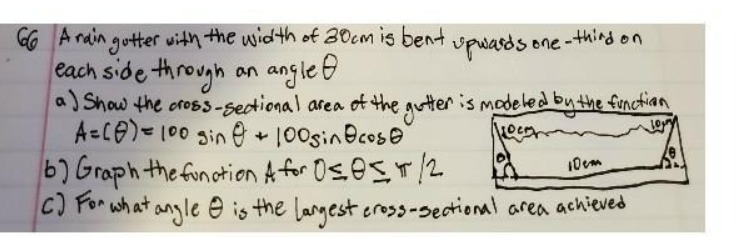 66 A rain gutter with the width of 30cm is bent upwards one-third on
each side through an angle θ
a) Show the cross-sectional area of the gutter is modeled by the function
A=(θ)= 100 sin θ + 100sinθcosθ
10cm 10cm
θ 10cm θ
b) Graph the function A for 0≤θ≤π/2
c) For what angle θ is the largest cross-sectional area achieved